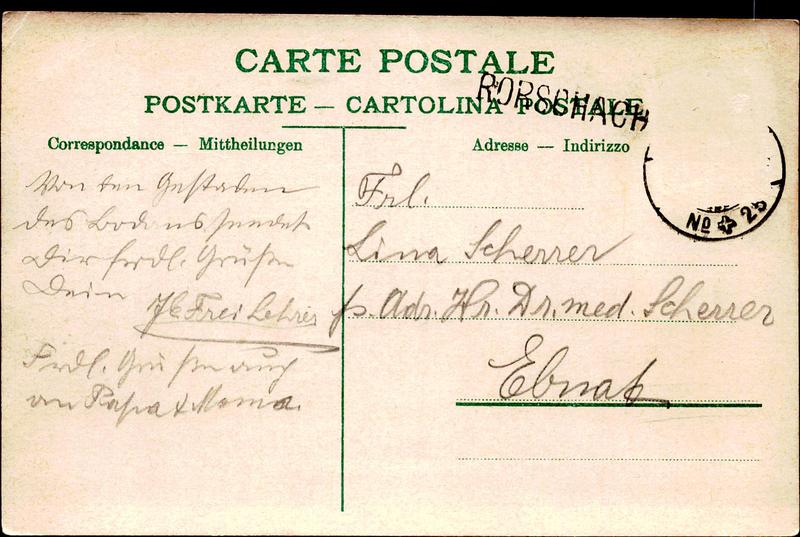 CARTE POSTALE
POSTKARTE — CARTOLINA POSTALE
RORSCHACH
Correspondance — Mittheilungen
Adresse — Indirizzo
No 25
Von den Gestaden
des Bodans sendet
Dir frdl. Grüße
Dein
Frei Lehrer
Frdl. Grüße auch
an Papa & Mama.
Frl.
Lina Scherrer
p. Adr. Hr. Dr. med. Scherrer
Ebnat